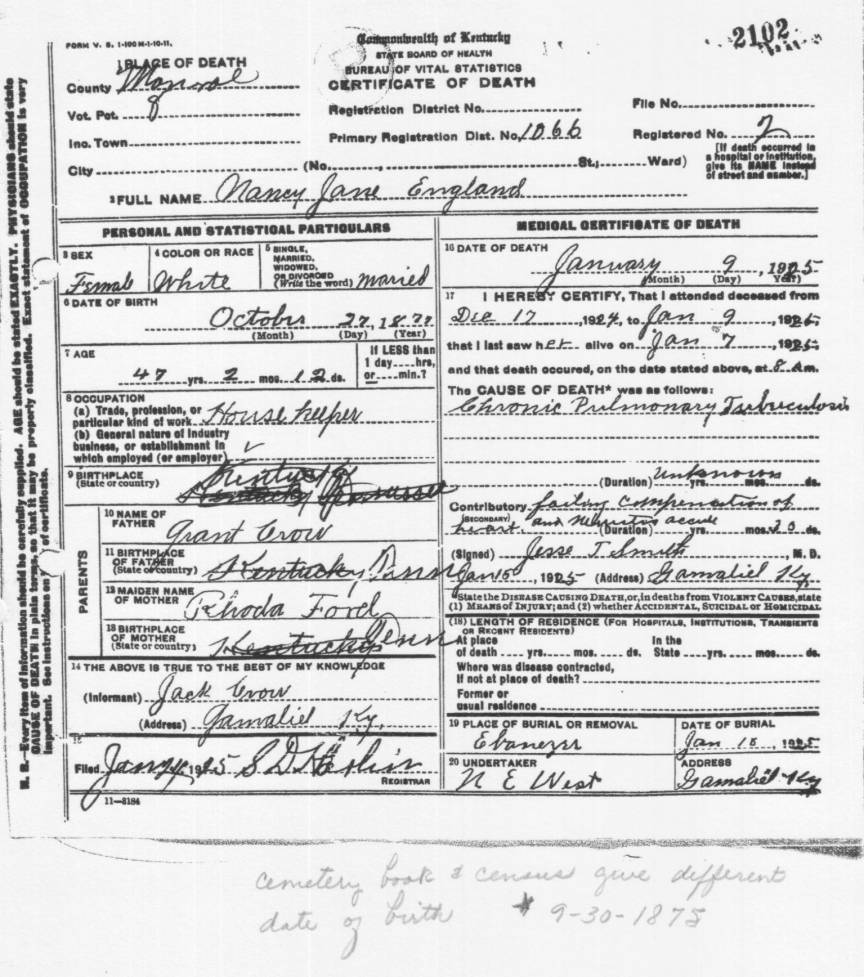 2102
FORM V. S. 1-100M-1-10-11.
Commonwealth of Kentucky
STATE BOARD OF HEALTH
BUREAU OF VITAL STATISTICS
CERTIFICATE OF DEATH
1 PLACE OF DEATH
County Monroe
Vot. Pct. 8
Inc. Town
City (No. , St.; Ward)
Registration District No.
Primary Registration Dist. No. 1066
File No.
Registered No. 2
[If death occurred in
a hospital or institution,
give its NAME instead
of street and number.]
2 FULL NAME Nancy Jane England
PERSONAL AND STATISTICAL PARTICULARS
3 SEX
Female
4 COLOR OR RACE
White
5 SINGLE,
MARRIED,
WIDOWED,
OR DIVORCED
(Write the word) Married
6 DATE OF BIRTH
October 27, 1877
(Month) (Day) (Year)
7 AGE
47 yrs. 2 mos. 12 ds.
If LESS than
1 day hrs.
or min.?
8 OCCUPATION
(a) Trade, profession, or
particular kind of work House Keeper
(b) General nature of industry
business, or establishment in
which employed (or employer)
9 BIRTHPLACE
(State or country) Kentucky
Kentucky Tennessee
PARENTS
10 NAME OF
FATHER
Grant Crow
11 BIRTHPLACE
OF FATHER
(State or country) Kentucky Tenn
12 MAIDEN NAME
OF MOTHER
Rhoda Ford
13 BIRTHPLACE
OF MOTHER
(State or country) Kentucky Tenn
14 THE ABOVE IS TRUE TO THE BEST OF MY KNOWLEDGE
(Informant) Jack Crow
(Address) Gamaliel Ky.
15
Filed Jan 1925 S D
REGISTRAR
11—3184
MEDICAL CERTIFICATE OF DEATH
16 DATE OF DEATH
January 9, 1925
(Month) (Day) (Year)
17 I HEREBY CERTIFY, That I attended deceased from
Dec 17, 1924, to Jan 9, 1925,
that I last saw her alive on Jan 7, 1925,
and that death occured, on the date stated above, at 8 Am.
The CAUSE OF DEATH* was as follows:
Chronic Pulmonary Tuberculosis
(Duration) Unknown yrs. mos. ds.
Contributory failing compensation of
(SECONDARY)
heart and acute (Duration) yrs. mos. 20 ds.
(Signed) Jesse T Smith, M. D.
Jan 15, 1925 (Address) Gamaliel Ky.
*State the DISEASE CAUSING DEATH, or, in deaths from VIOLENT CAUSES, state
(1) MEANS OF INJURY; and (2) whether ACCIDENTAL, SUICIDAL or HOMICIDAL
(18) LENGTH OF RESIDENCE (FOR HOSPITALS, INSTITUTIONS, TRANSIENTS
OR RECENT RESIDENTS)
At place In the
of death yrs. mos. ds. State yrs. mos. ds.
Where was disease contracted,
If not at place of death?
Former or
usual residence
19 PLACE OF BURIAL OR REMOVAL
Ebanezer
DATE OF BURIAL
Jan 10, 1925
20 UNDERTAKER
N E West
ADDRESS
Gamaliel Ky
N. B.—Every item of information should be carefully supplied. AGE should be stated EXACTLY. PHYSICIANS should state
CAUSE OF DEATH in plain terms, so that it may be properly classified. Exact statement of OCCUPATION is very
important. See instructions on of certificate.
cemetery book & census give different
date of birth * 9-30-1875